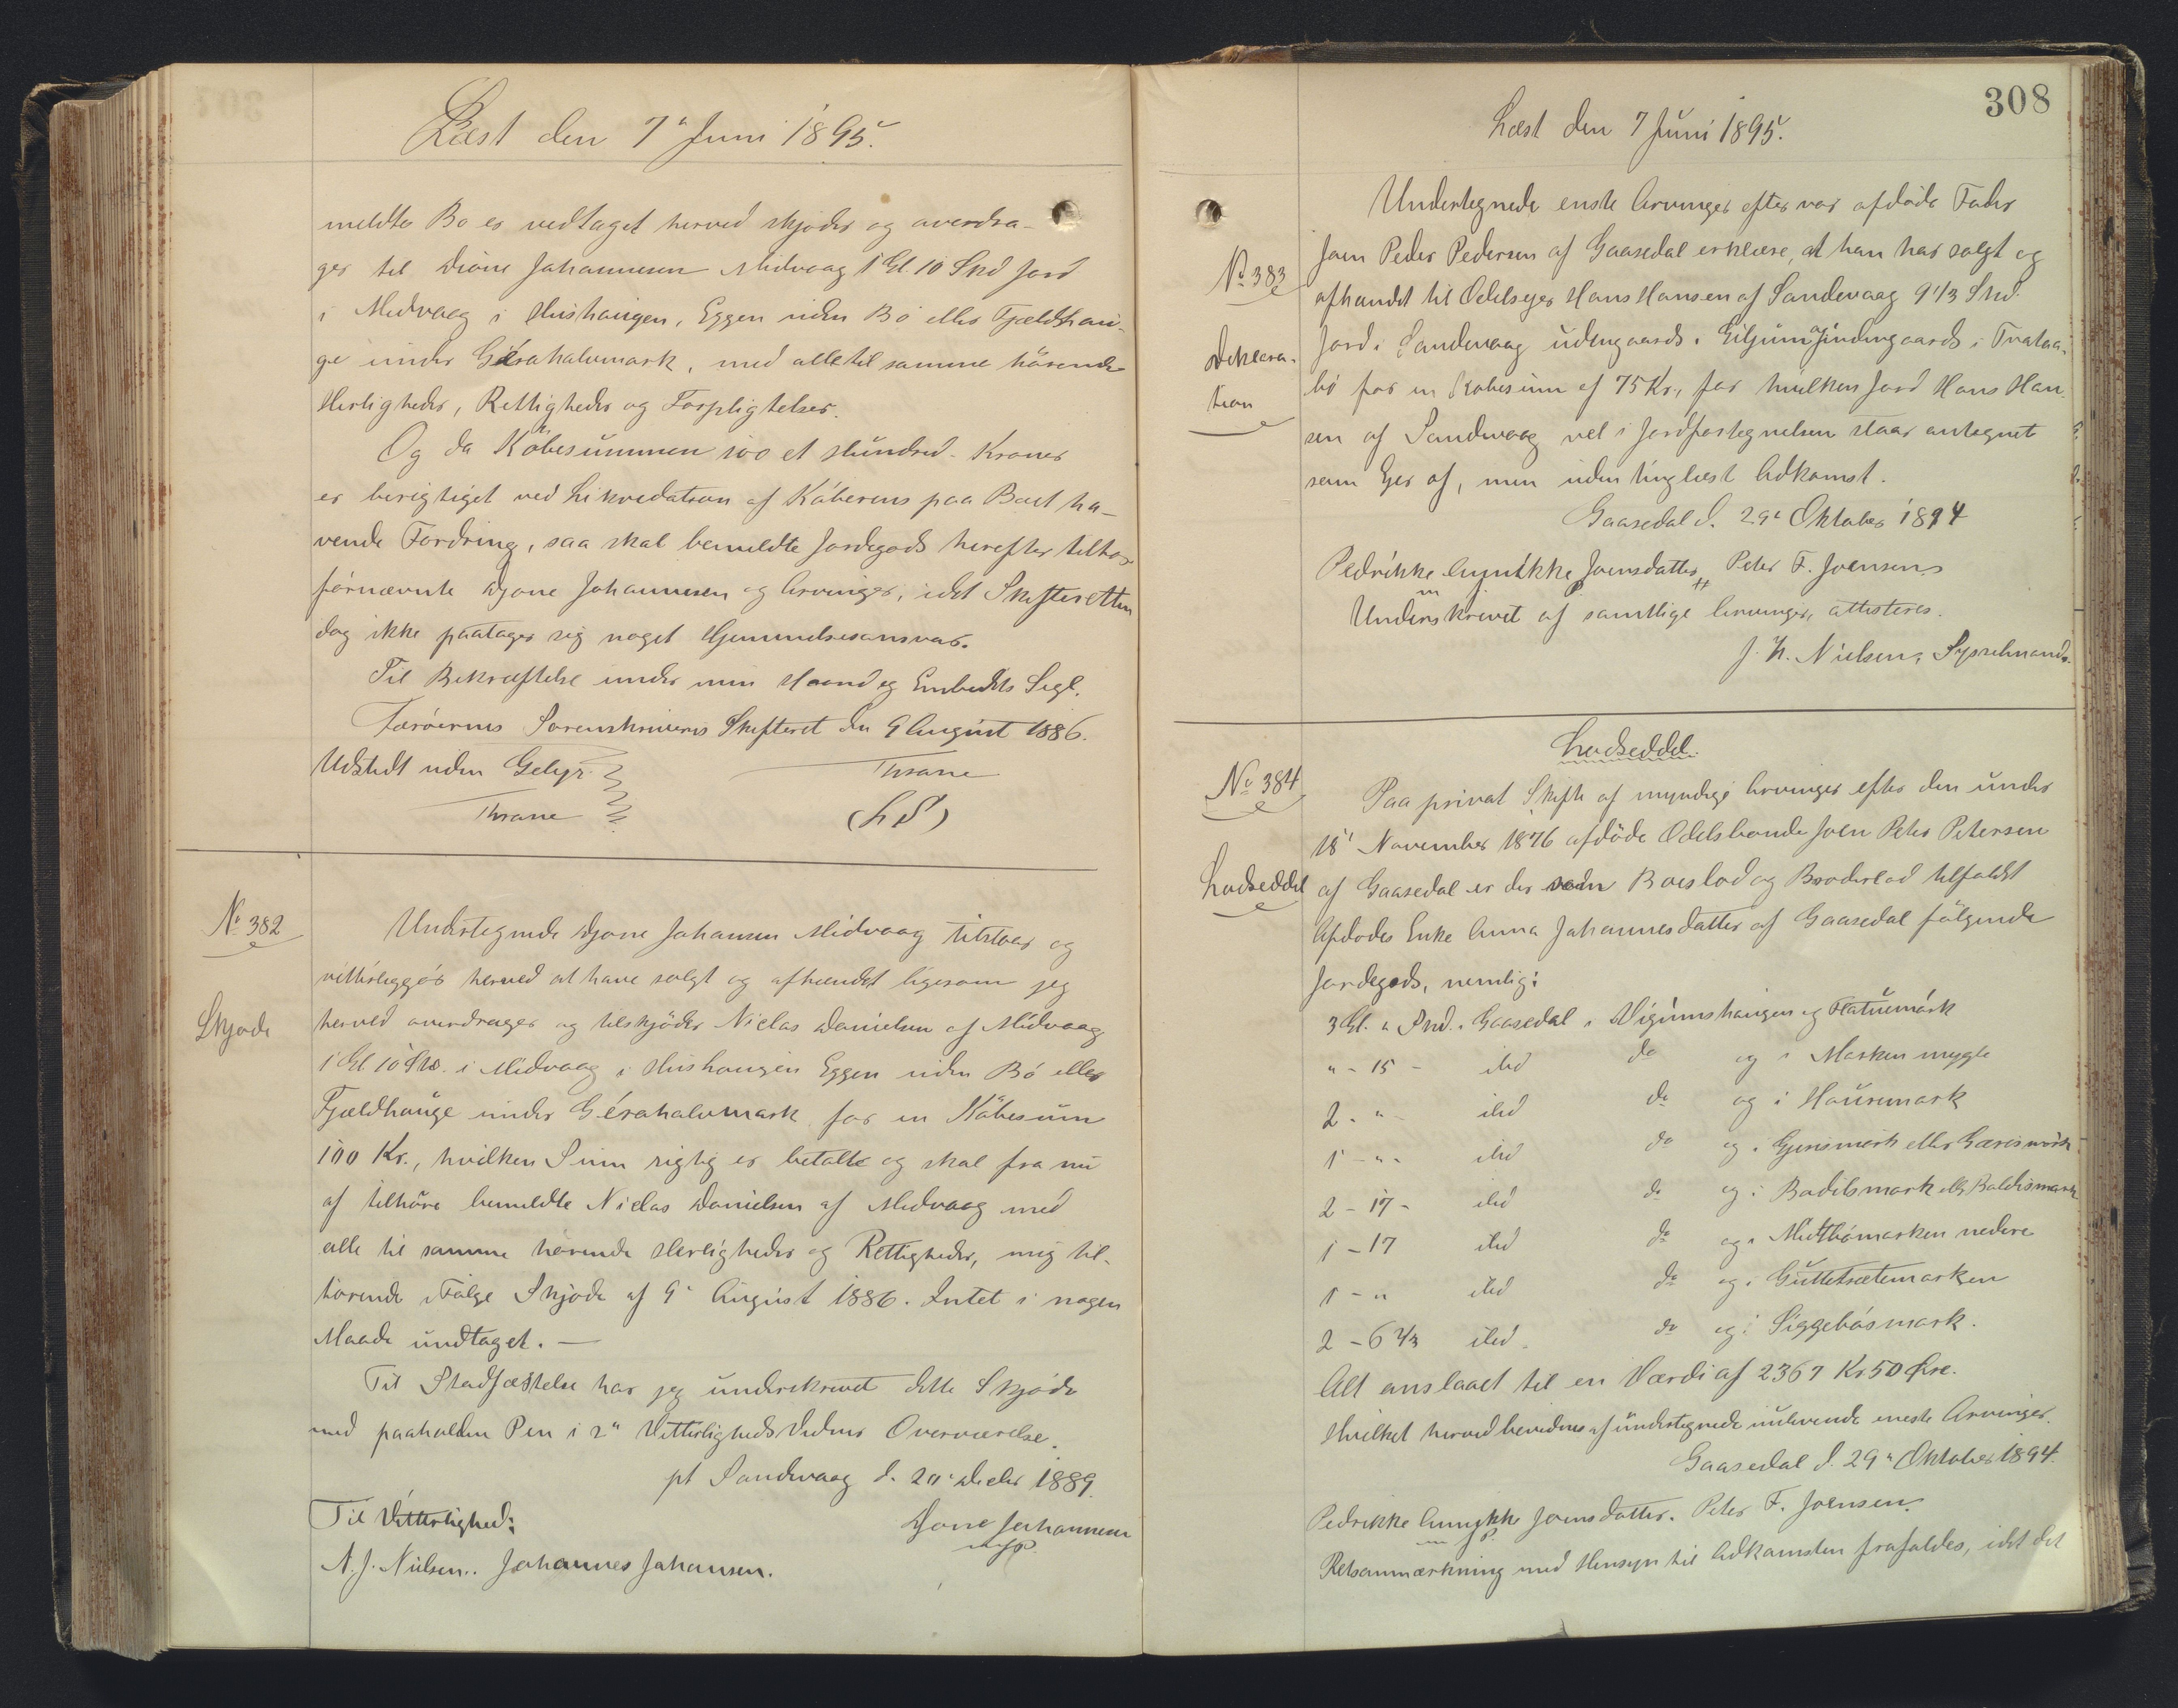 Læst den 7' Juni 1895.
meldte Bo er vedtaget herved skjøder og overdra-
ges til Dione Johannesen Midvaag 1 Gl. 10 Skd Jord
i Midvaag i Hushaugen, Eggen uden Bø eller Fjældhau-
ge under Gérahalvmark, med alle til samme hørende
Herligheder, Rettigheder og Forpligtelser.
Og da Köbesummen 100 et Hundred Kroner
er berigtiget ved Likvidation af Köberens paa Boet ha-
vende Fordring, saa skal bemeldte Jordegods herefter tilhøre
førnævnte Djone Johannesen og Arvinger, idet Skifteretten
dog ikke paatager sig noget Hjemmelsansvar.
Til Bekræftelse under min Haand og Embedets Segl.
Færøernes Sorenskriveris Skifteret den 9 August 1886.
Udstedt uden Gebyr. Thrane
Thrane (L S)
No 382
Skjøde
Undertegnede Djone Johansen Midvaag tilstaar og
vitterliggør herved at have solgt og afhændet ligesom jeg
herved overdrager og tilskjöder Niclas Danielsen af Midvaag
1 Gl 10 Skd. i Midvaag i Hushaugen Eggen uden Bø eller
Fjældhauge under Gérahalvmark for en Köbesum
100 Kr., hvilken Sum rigtig er betalt og skal fra nu
af tilhöre bemeldte Niclas Danielsen af Midvaag med
alle til samme hørende Herligheder og Rettigheder, mig til-
hørende ifølge Skjøde af 9' August 1886. Intet i nogen
Maade undtaget. —
Til Stadfæstelse har jeg underskrevet dette Skjøde
med paaholden Pen i 2" Vitterligheds Vidners Overværelse.
pt Sandevaag d. 20' Decbr 1889.
Til Vitterlighed: Djone Johannesen
N. J. Nielsen. Johannes Johansen.
308
Læst den 7 Juni 1895.
No 383
Deklara-
tion
Undertegnede eneste Arvinger efter vor afdöde Fader
Joen Peder Pedersen af Gaasedal erklære, at han har solgt og
afhændet til Odelseyer Hans Hansen af Sandevaag 9 1/3 Skd.
Jord i Sandevaag udengaards i Giljum og indengaards i Trataa-
bø for en Købesum af 75 Kr., for hvilken Jord Hans Han-
sen af Sandevaag vel i Jordfortegnelsen staar antegnet
som Ejer af, men uden tinglæst Adkomst.
Gaasedal d. 29' Oktober 1894
Pedrikke Annikke Joensdatter, Peter F. Joensen.
Underskrevet af samtlige Arvinger, attesteres.
J. H. Nielsen, Sysselmand.
Lodseddel.
No 384
Lodseddel
Paa privat Skifte af myndige Arvinger efter den under
18' November 1876 afdöde Odelsbonde Joen Peter Petersen
af Gaasedal er der som Boeslod og Broderlod tilfaldt
Afdødes Enke Anna Johannesdatter af Gaasedal fölgende
Jordegods, nemlig:
3 Gl. " Skd. i Gaasedal i Vigumshaugen og Flatumark
" - 15 - ibd do og i Marken mygle
2 - " - ibd do og i Hauremark
1 - " - ibd do og i Gjersmark eller Garcismark
2 - 17 - ibd do og i Badilsmark ell. Baldismark
1 - 17 ibd do og i Midtbömarken nedere
1 - " ibd do og i Guttetrætemarken
2 - 6 2/3 ibd. do og i Siggebösmark.
Alt anslaaet til en Værdi af 2367 Kr 50 Øre.
Hvilket herved bevidnes af undertegnede nulevende eneste Arvinger.
Gaasedal d. 29" Oktober 1894.
Pedrikke Annikke Joensdatter. Peter F. Joensen.
Retsanmærkning med Hensyn til Adkomsten frafaldes, idet det